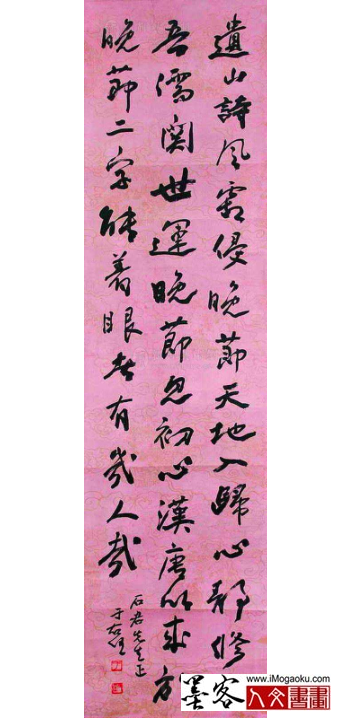 遺山詩風霜侵晚節天地入歸心靜修
吾儒関世運晚節忽初心漢唐以來方
晚節二字能着眼者有幾人哉
石君先生正
于右任
www.iMogaoku.com
墨客
人文書畫